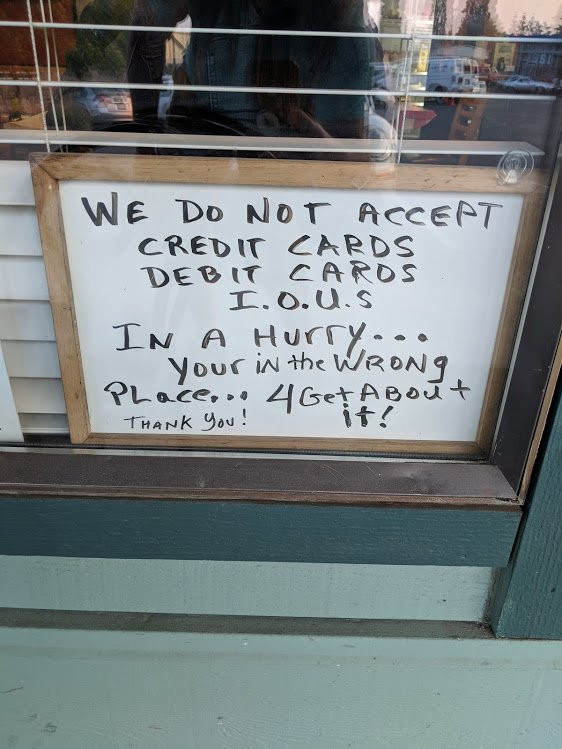 WE DO NOT ACCEPT
CREDIT CARDS
DEBIT CARDS
I.O.U.S
IN A HURRY...
YOUR IN the WRONg
PLace... 4GetABOUt
THANK YOU! it!